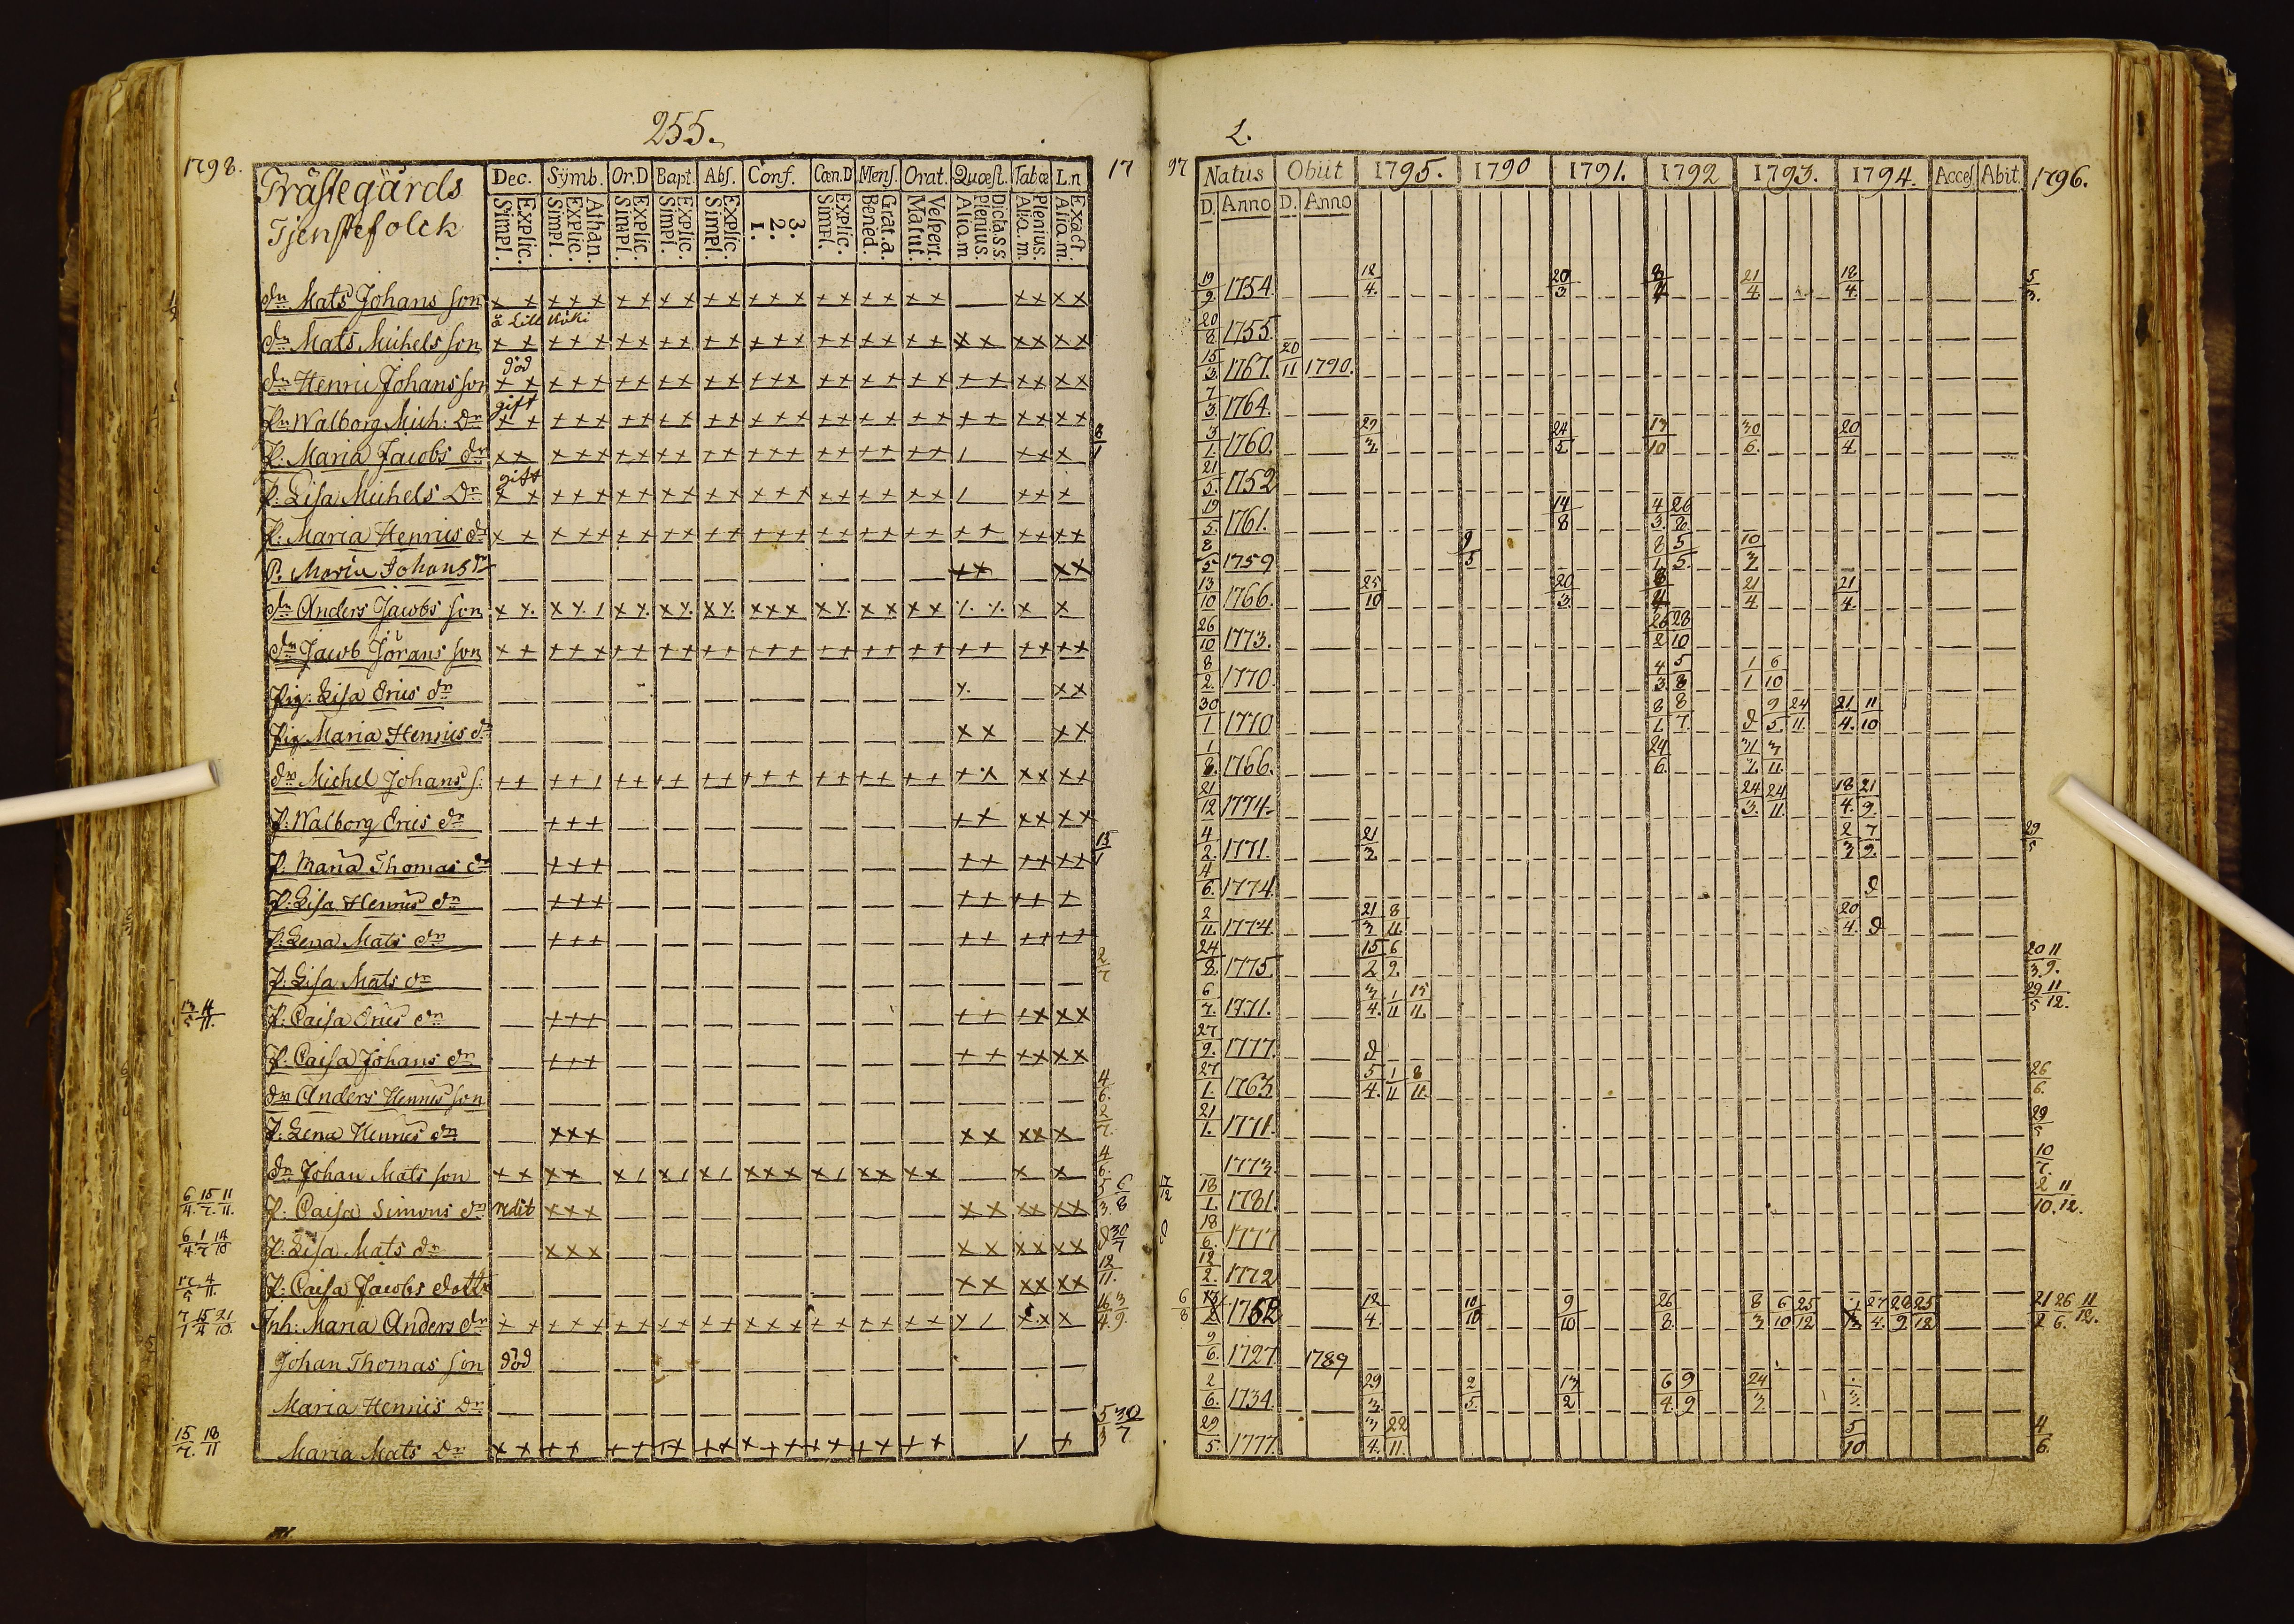 255.
1798.
Prästegårds
Tjenstefolck
Dec. Symb. Or.D Bapt. Abs. Conf. Cœn.D Mens. Orat. Quœst. Tabœ L.n
Explic. Simpl. Athan. Explic. Simpl. Explic. Simpl. Explic. Simpl. Explic. Simpl. 3. 2. 1. Explic. Simpl. Grat.a. Bened. Vespert. Matut. Dicta.s.s. Plenius. Aliq.m Plenius. Aliq.m. Exact. Aliq.m.
17
dn Mats Johans son
å Lill Kuki
dn Mats Michels son
död
dn Henric Johans son
gift
Pn Walborg Mich: Dr
P: Maria Jacobs dr 8/1
gift
P: Lisa Michels Dr
P: Maria Henrics dr
P. Maria Johans dr
dn Anders Jacobs son
dn Jacob Jörans son
Pig: Lisa Erics dr
Pig Maria Henrics dr
dn Michel Johans s:
P: Walborg Erics dr
P: Maria Thomas dr 15/1
P: Lisa Henrics dr
P: Lena Mats dr
P: Lisa Mats dr 2/7
13/5 4/11 P: Caisa Erics dr
P: Caisa Johans dr
dn Anders Henrics son 4/6.
P: Lena Henrics dr 2/7.
dn Johan Mats son 4/6.
6/4. 15/7. 11/11. P: Caisa Simons dr redit 5/3. 6/8
6/4 1/7 14/10 P: Lisa Mats dr 30/7
4/11. P: Caisa Jacobs dotter 12/11.
7/1 15/7 21/10. Inh: Maria Anders dr 16/4 3/9.
Johan Thomas son död
Maria Henrics Dr
15/7. 18/11 Maria Mats Dr 5/3 30/7
L.
97
Natus Obiit 1795. 1790 1791. 1792 1793. 1794. Acces Abit. 1796.
D. Anno D. Anno
19/9 1754. 18/4. 20/3. 8/4 21/4 18/4. 5/3.
20/8 1755.
15/3. 1767. 20/11 1790.
7/3. 1764.
3/1. 1760. 29/3. 24/5 13/10 30/6. 20/4
21/5. 1752
19/5. 1761. 14/8 4/3. 26/8.
8/5 1759 9/5 8/1. 5/5. 10/3
13/10 1766. 25/10 20/3 8/4 21/4 21/4.
26/10 1773. 26/2 28/10
8/2. 1770. 4/3. 5/8 1/1 6/10
30/1 1770 8/1. 8/7. 9/5. 24/11. 21/4. 11/10
1/8. 1766. 24/6. 3/11.
21/12 1774. 24/3. 24/11. 18/4. 21/9.
4/2. 1771. 21/3. 2/3 7/9. 29/5
4/6. 1774.
2/11. 1774 21/3 8/11. 20/4.
24/8. 1775 15/2 6/9. 20/3. 11/9.
6/7. 1771. 3/4. 1/11 15/11. 29/5 11/12.
27/9. 1777.
27/1. 1763. 5/4. 1/11 8/11. 26/6.
21/1. 1771. 29/5
1773. 10/7.
17/12 18/1. 1781. 2/10. 11/12.
18/6. 1777
12/2. 1772
6/8 1752 12/4. 10/10 9/10 26/8. 8/3 6/10 25/12 27/4. 28/9. 25/12 21/2 26/6. 11/12.
9/6. 1727 1789
2/6. 1734. 29/3. 2/5. 13/2 6/4 9/9 24/3
29/5. 1777. 3/4. 22/11. 5/10 4/6.